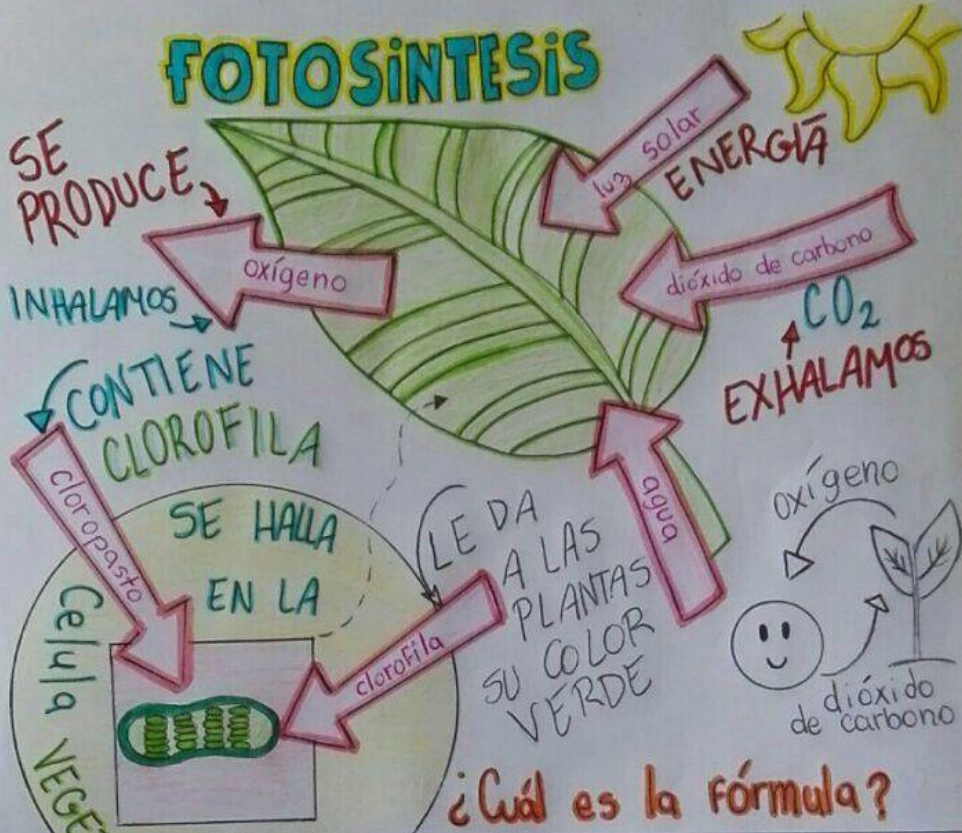 FOTOSíNTESIS
SE
PRODUCE
oxígeno
INHALAMOS
luz solar
ENERGíA
dióxido de carbono
CO2
EXHALAMOS
CONTIENE
CLOROFILA
cloropasto
SE HALLA
EN LA
Celula
LE DA
A LAS
PLANTAS
SU COLOR
VERDE
clorofila
agua
oxígeno
dióxido
de carbono
¿Cuál es la FÓRMULA?